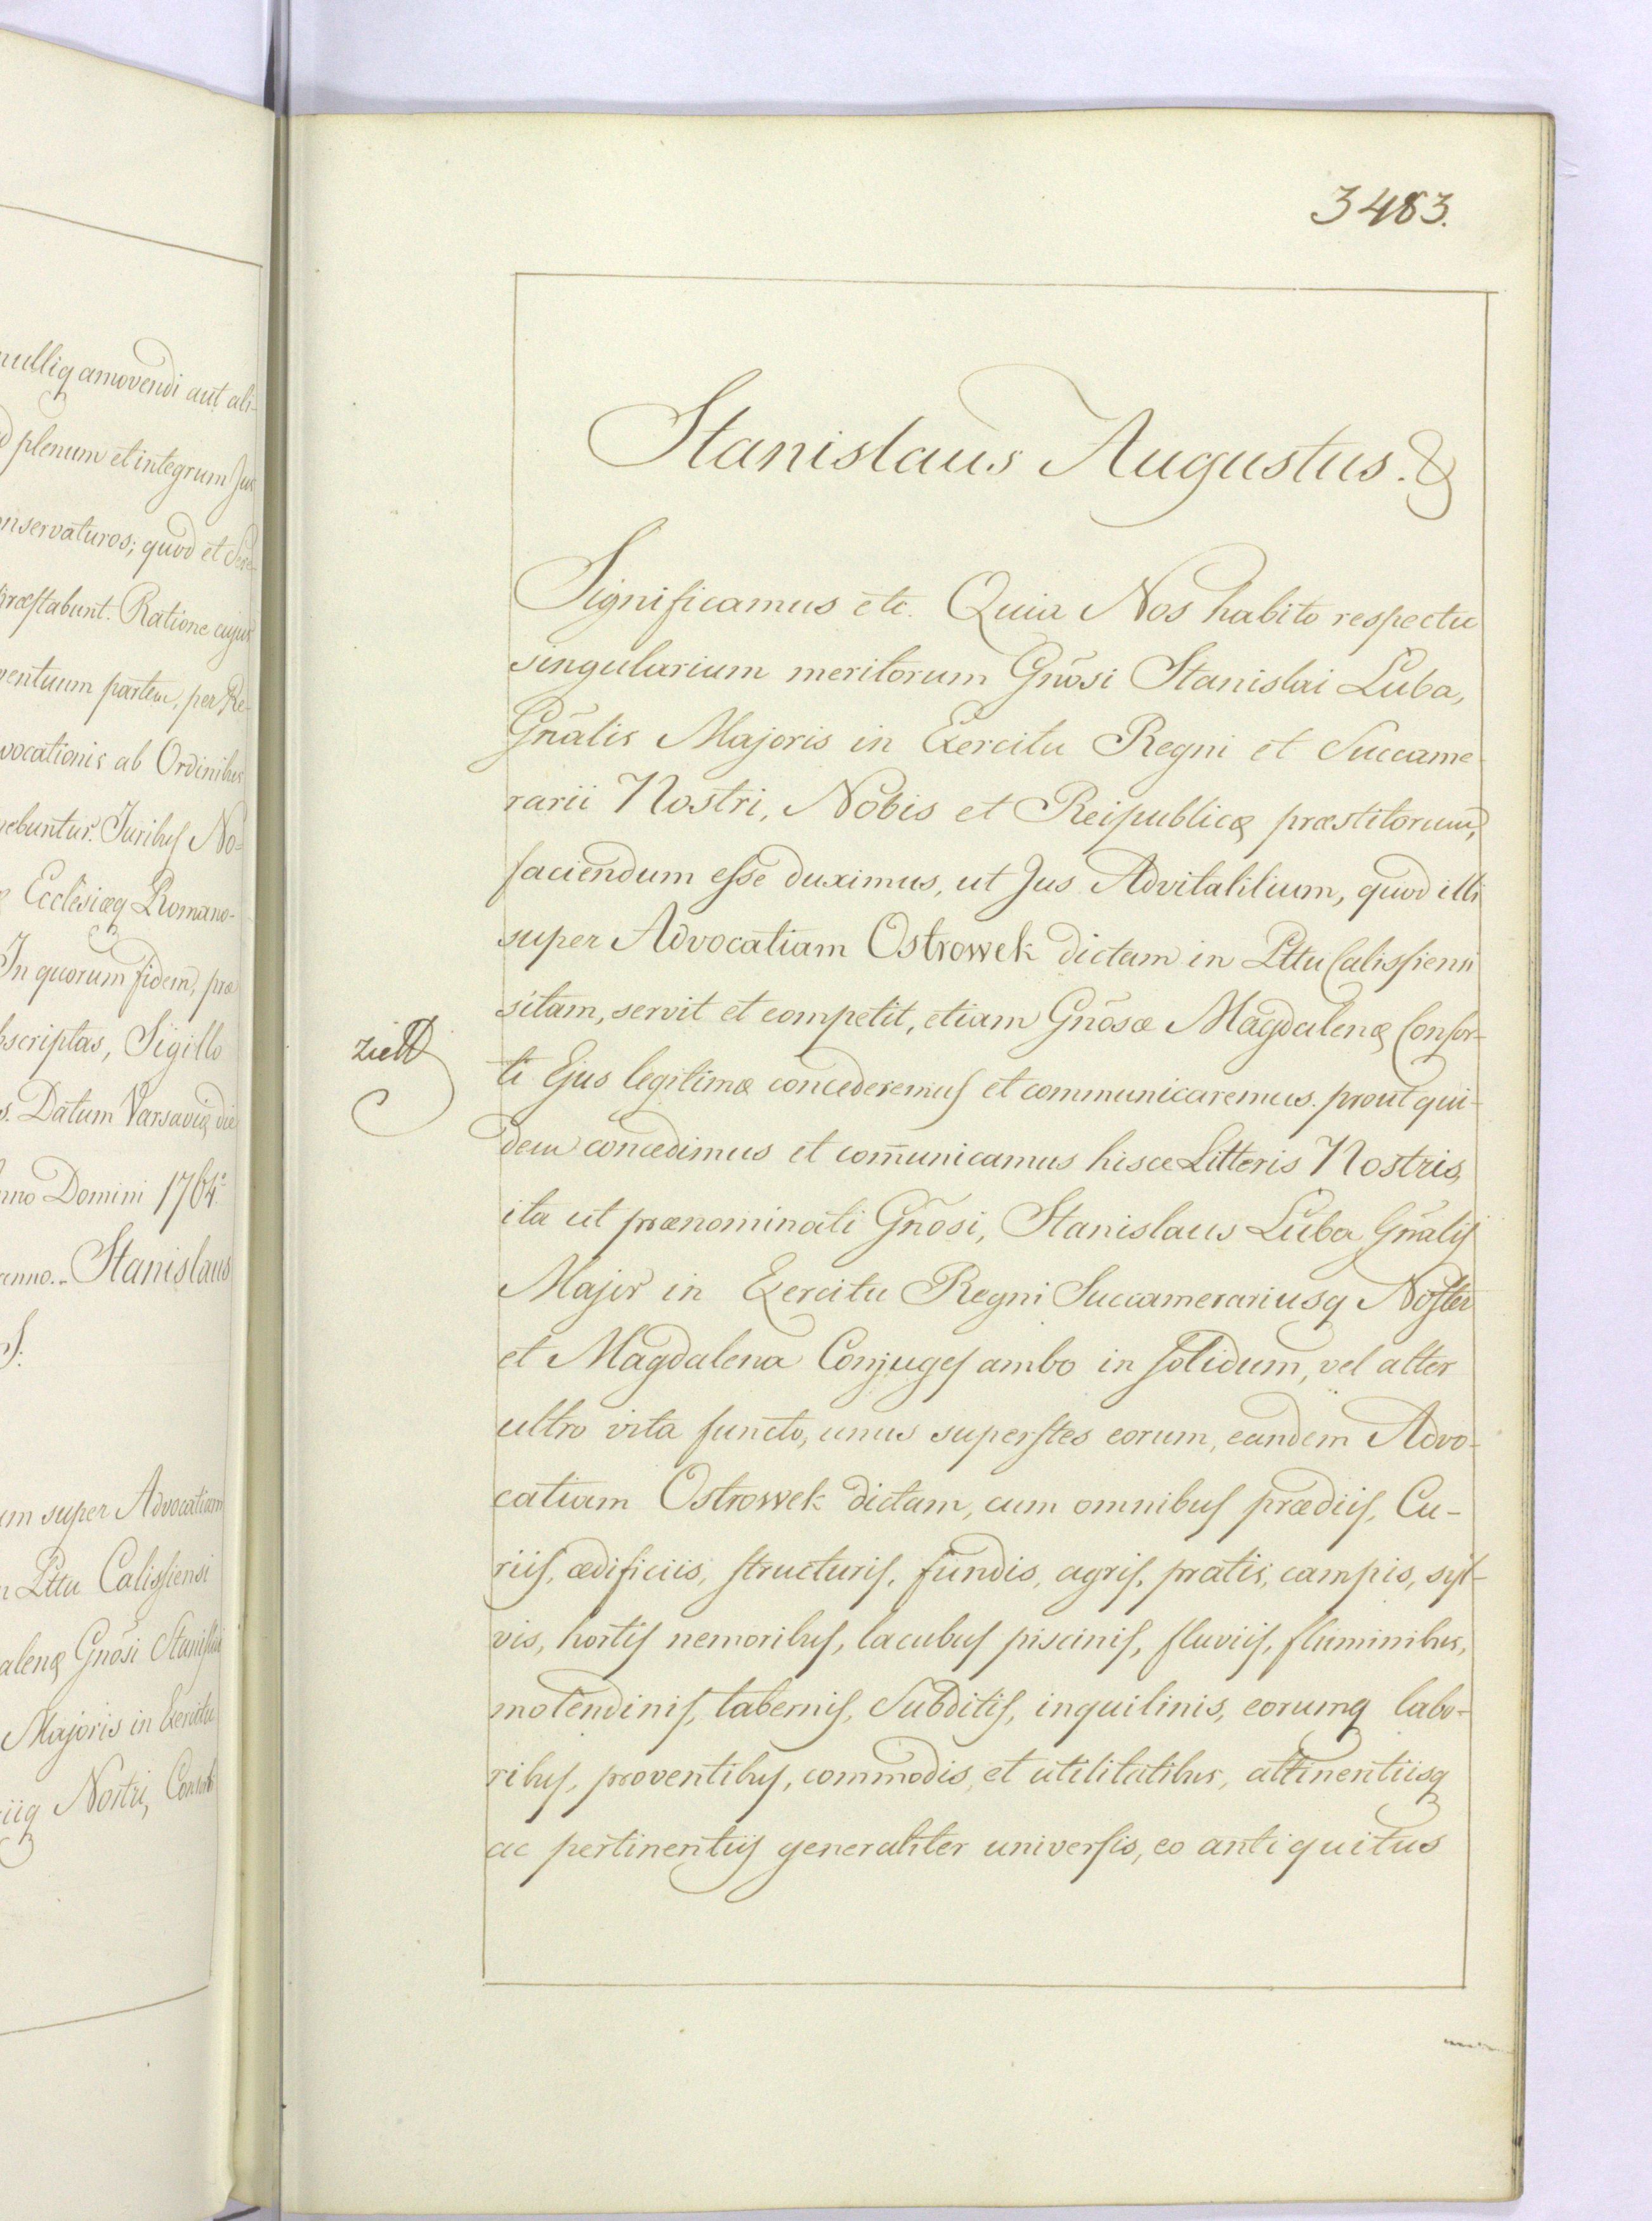 nulliq amovendi aut ali-
plenum et integrum Jus
nservaturos; quod et
præstabunt. Ratione cujus
ventuum partem, per Re-
vocationis ab Ordinibus
nebuntur. Juribus No-
Ecclesiæq Romano-
In quorum fidem, præ
bscriptas, Sigillo
s. Datum Varsaviæ die
nno Domini 1764.
enno.. Stanislaus
S.
um super Advocatiam
n Pttu Calissiensi
alenæ Gnõsi Stanislai
Majoris in Exercitu
iiq Nostri, Consorti
3483.
Stanislaus Augustus. &
Significamus etc. Quia Nos habito respectu
singularium meritorum Gnõsi Stanislai Luba,
Gnãlis Majoris in Exercitu Regni et Succame-
rarii Nostri, Nobis et Reipublicæ præstitorum,
faciendum esse duximus, ut Jus Advitalitium, quod illi
super Advocatiam Ostrowek dictam in Pttu Calissiensi
sitam, servit et competit, etiam Gnõsæ Magdalenæ Consor-
ti Ejus legitimæ concederemus et communicaremus. prout qui-
dem concedimus et com̄unicamus hisce Litteris Nostris,
ita ut prænominati Gnõsi, Stanislaus Luba Gnãlis
Major in Exercitu Regni Succamerariusq Noster
et Magdalena Conjuges ambo in solidum, vel alter
ultro vita functo, unus superstes eorum, eandem Advo-
catiam Ostrowek dictam, cum omnibus prædiis, Cu-
riis, ædificiis, structuris, fundis, agris, pratis, campis, syl-
vis, hortis nemoribus, lacubus piscinis, fluviis, fluminibus,
molendinis, tabernis, Subditis, inquilinis, eorumq labo-
ribus, proventibus, commodis, et utilitatibus, attinentiisq
ac pertinentiis generaliter universis, eo antiquitus